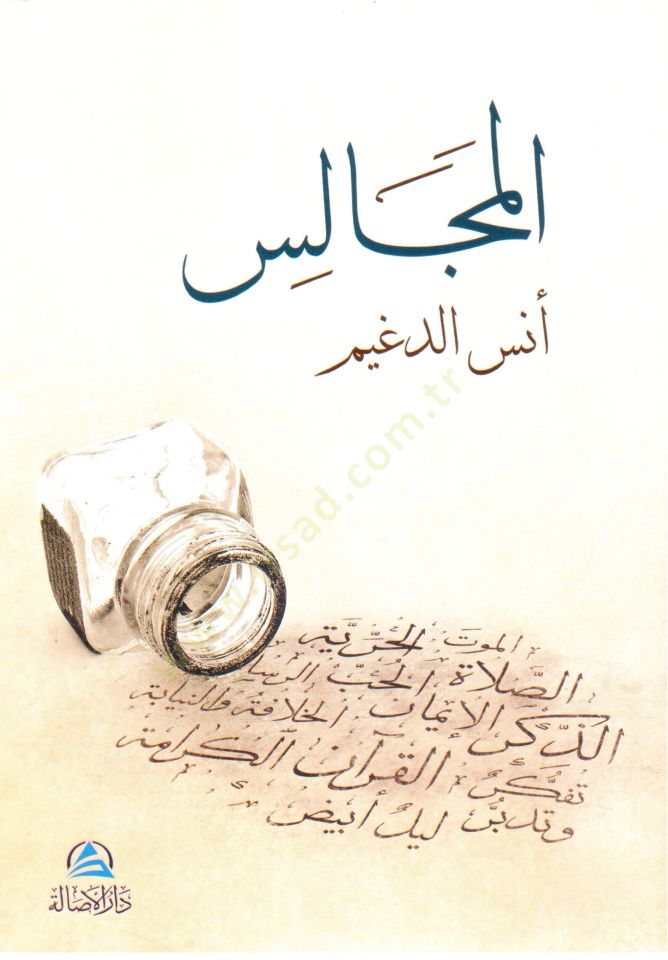 المجَالِس
أنس الدغيم
الموت الحُرّيّة
الصَّلاة الحُبّ
الذِّكر الإيمان الخلافة والنيابة
تفكُّرٌ القرآن الكرامة
وتدبُّر ليلٌ أبيض
دار الأصالة